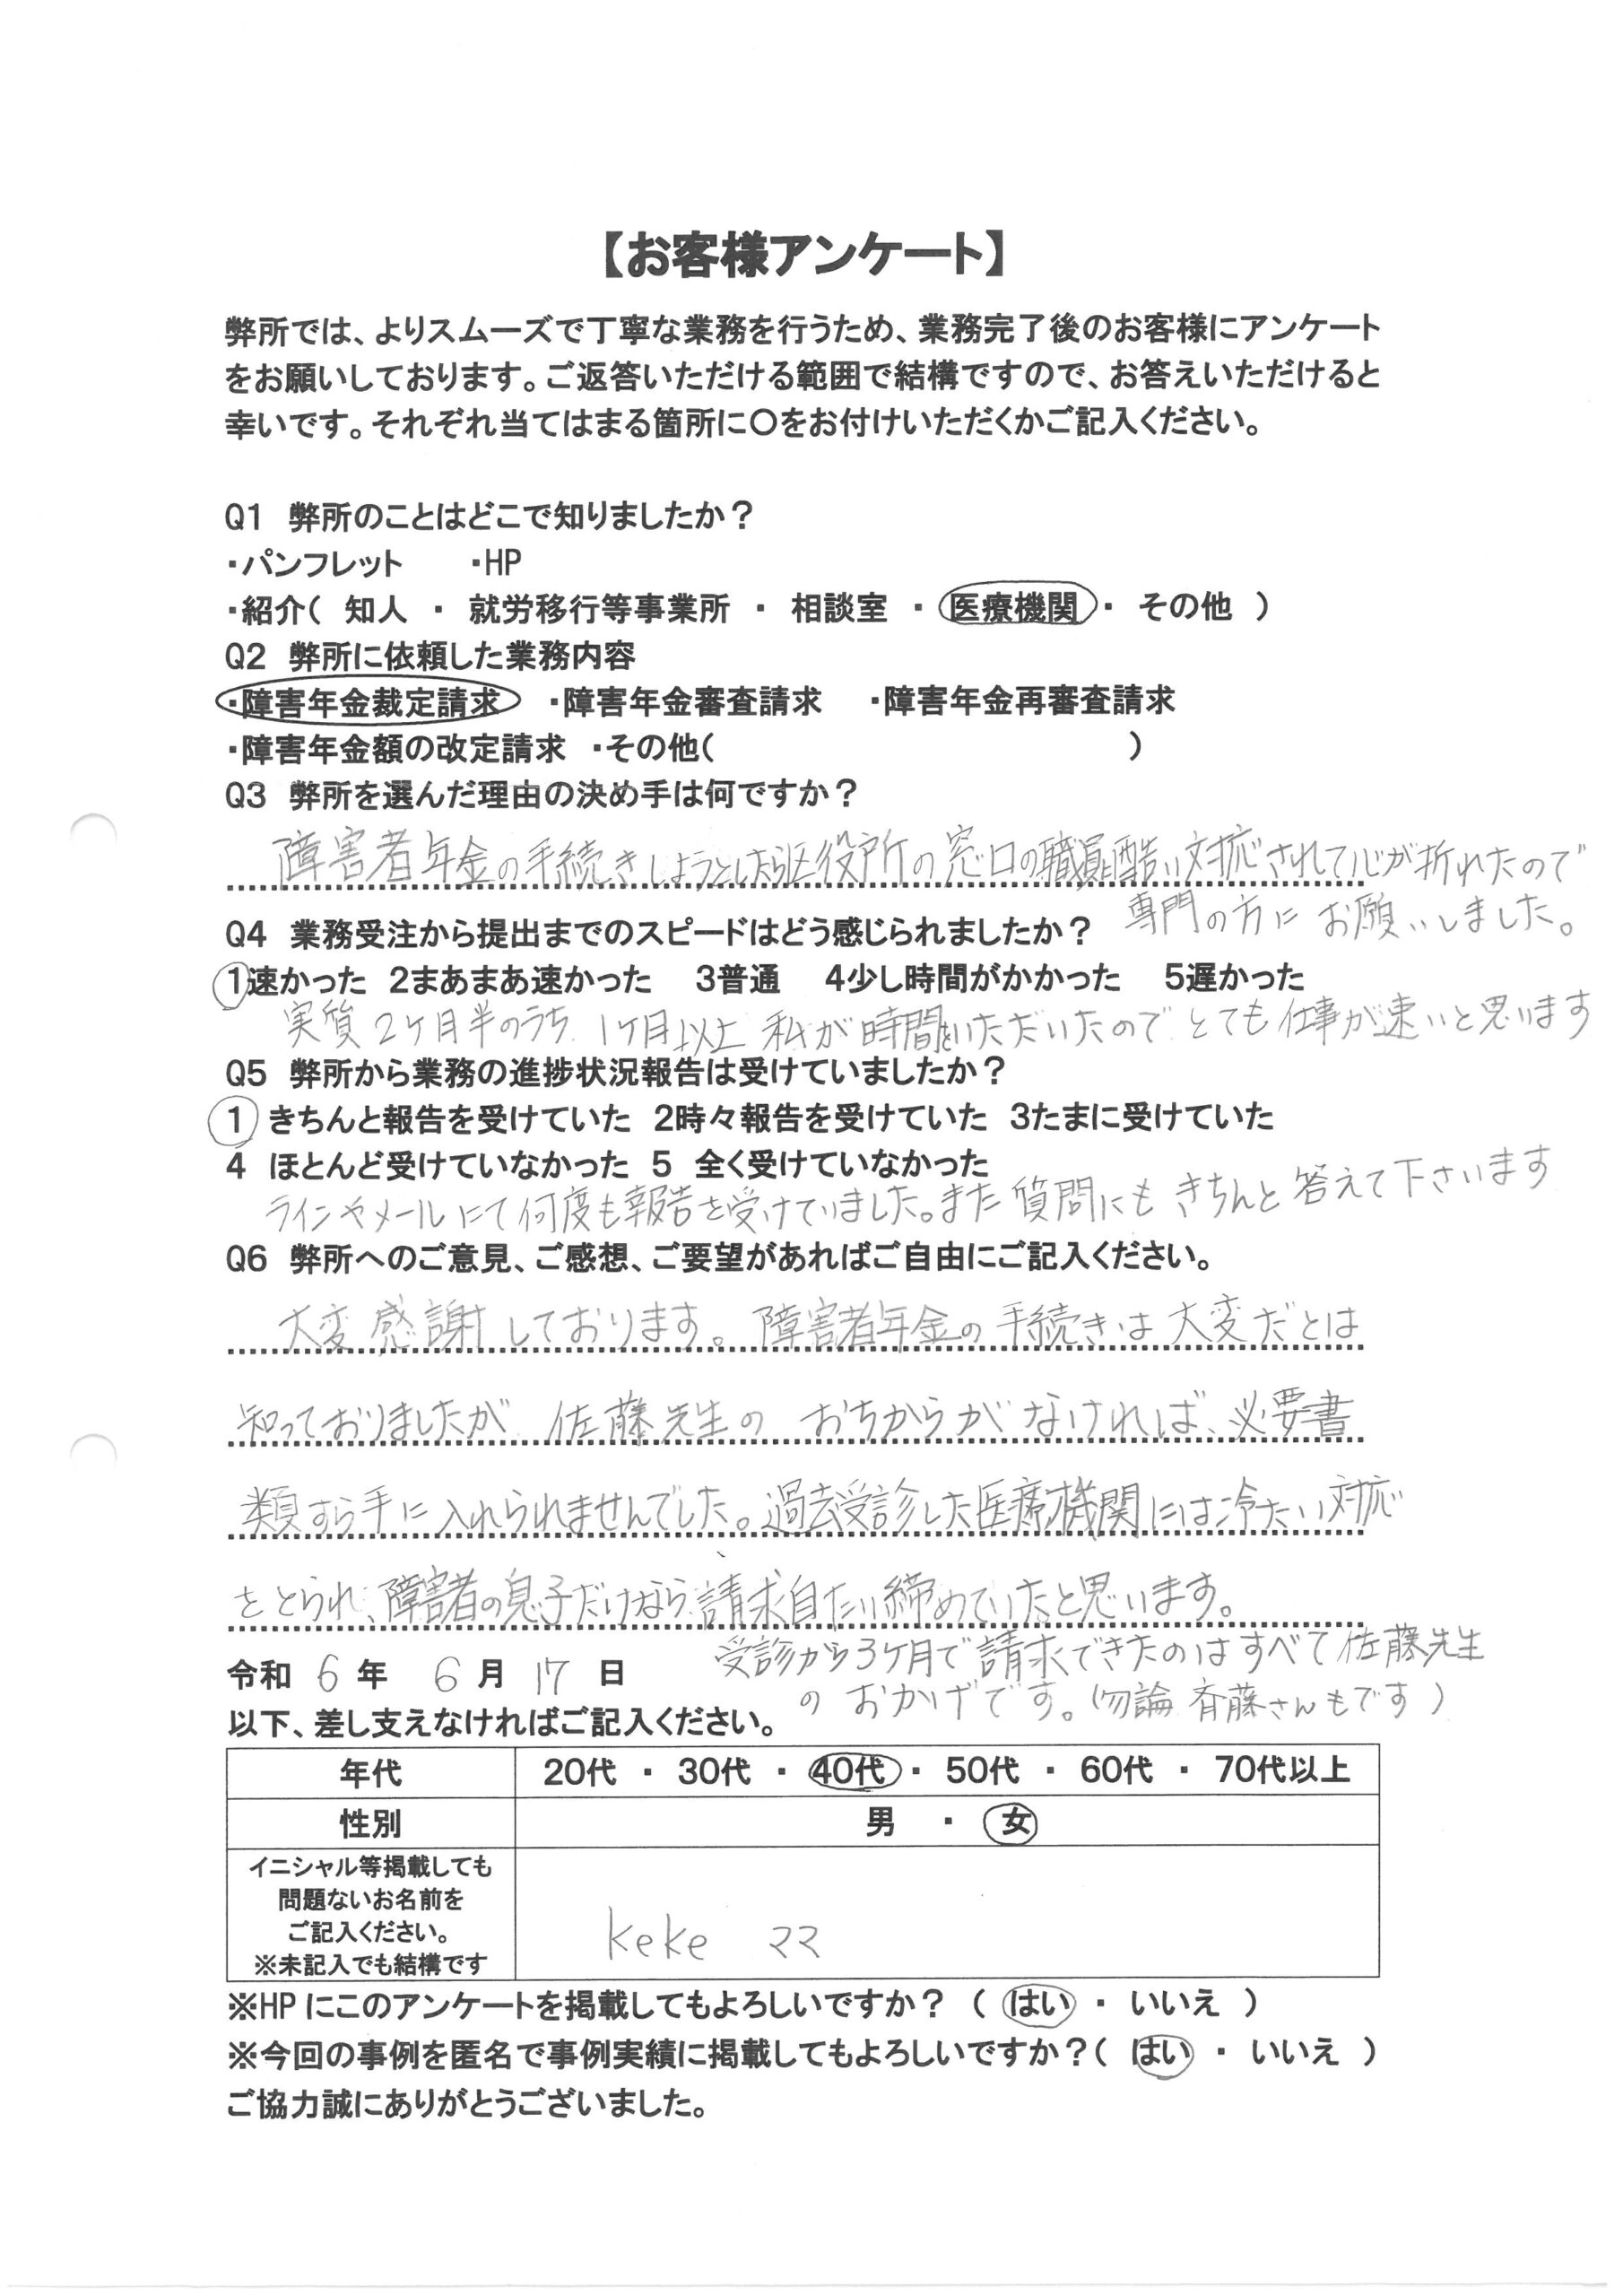 【お客様アンケート】
弊所では、よりスムーズで丁寧な業務を行うため、業務完了後のお客様にアンケート
をお願いしております。ご返答いただける範囲で結構ですので、お答えいただけると
幸いです。それぞれ当てはまる箇所に〇をお付けいただくかご記入ください。
Q1 弊所のことはどこで知りましたか？
・パンフレット ・HP
・紹介（ 知人 ・ 就労移行等事業所 ・ 相談室 ・ 医療機関 ・ その他 ）
Q2 弊所に依頼した業務内容
・障害年金裁定請求 ・障害年金審査請求 ・障害年金再審査請求
・障害年金額の改定請求 ・その他（ ）
Q3 弊所を選んだ理由の決め手は何ですか？
障害者年金の手続きしようとしたら区役所の窓口の職員に酷い対応されて心が折れたので
専門の方にお願いしました。
Q4 業務受注から提出までのスピードはどう感じられましたか？
1速かった 2まあまあ速かった 3普通 4少し時間がかかった 5遅かった
実質2ケ月半のうち 1ケ月以上 私が時間をいただいたので とても仕事が速いと思います
Q5 弊所から業務の進捗状況報告は受けていましたか？
1 きちんと報告を受けていた 2時々報告を受けていた 3たまに受けていた
4 ほとんど受けていなかった 5 全く受けていなかった
ラインやメールにて何度も報告を受けていました。また質問にもきちんと答えて下さいます
Q6 弊所へのご意見、ご感想、ご要望があればご自由にご記入ください。
大変感謝しております。障害者年金の手続きは大変だとは
知っておりましたが、佐藤先生の おちからがなければ、必要書
類すら手に入れられませんでした。過去受診した医療機関には冷たい対応
をとられ、障害者の息子だけなら、請求自たい締めていたと思います。
受診から3ケ月で請求できたのはすべて佐藤先生
のおかげです。（勿論 斉藤さんもです）
令和 6 年 6 月 17 日
以下、差し支えなければご記入ください。
年代 20代 ・ 30代 ・ 40代 ・ 50代 ・ 60代 ・ 70代以上
性別 男 ・ 女
イニシャル等掲載しても
問題ないお名前を
ご記入ください。
※未記入でも結構です
keke ママ
※HPにこのアンケートを掲載してもよろしいですか？（ はい ・ いいえ ）
※今回の事例を匿名で事例実績に掲載してもよろしいですか？（ はい ・ いいえ ）
ご協力誠にありがとうございました。